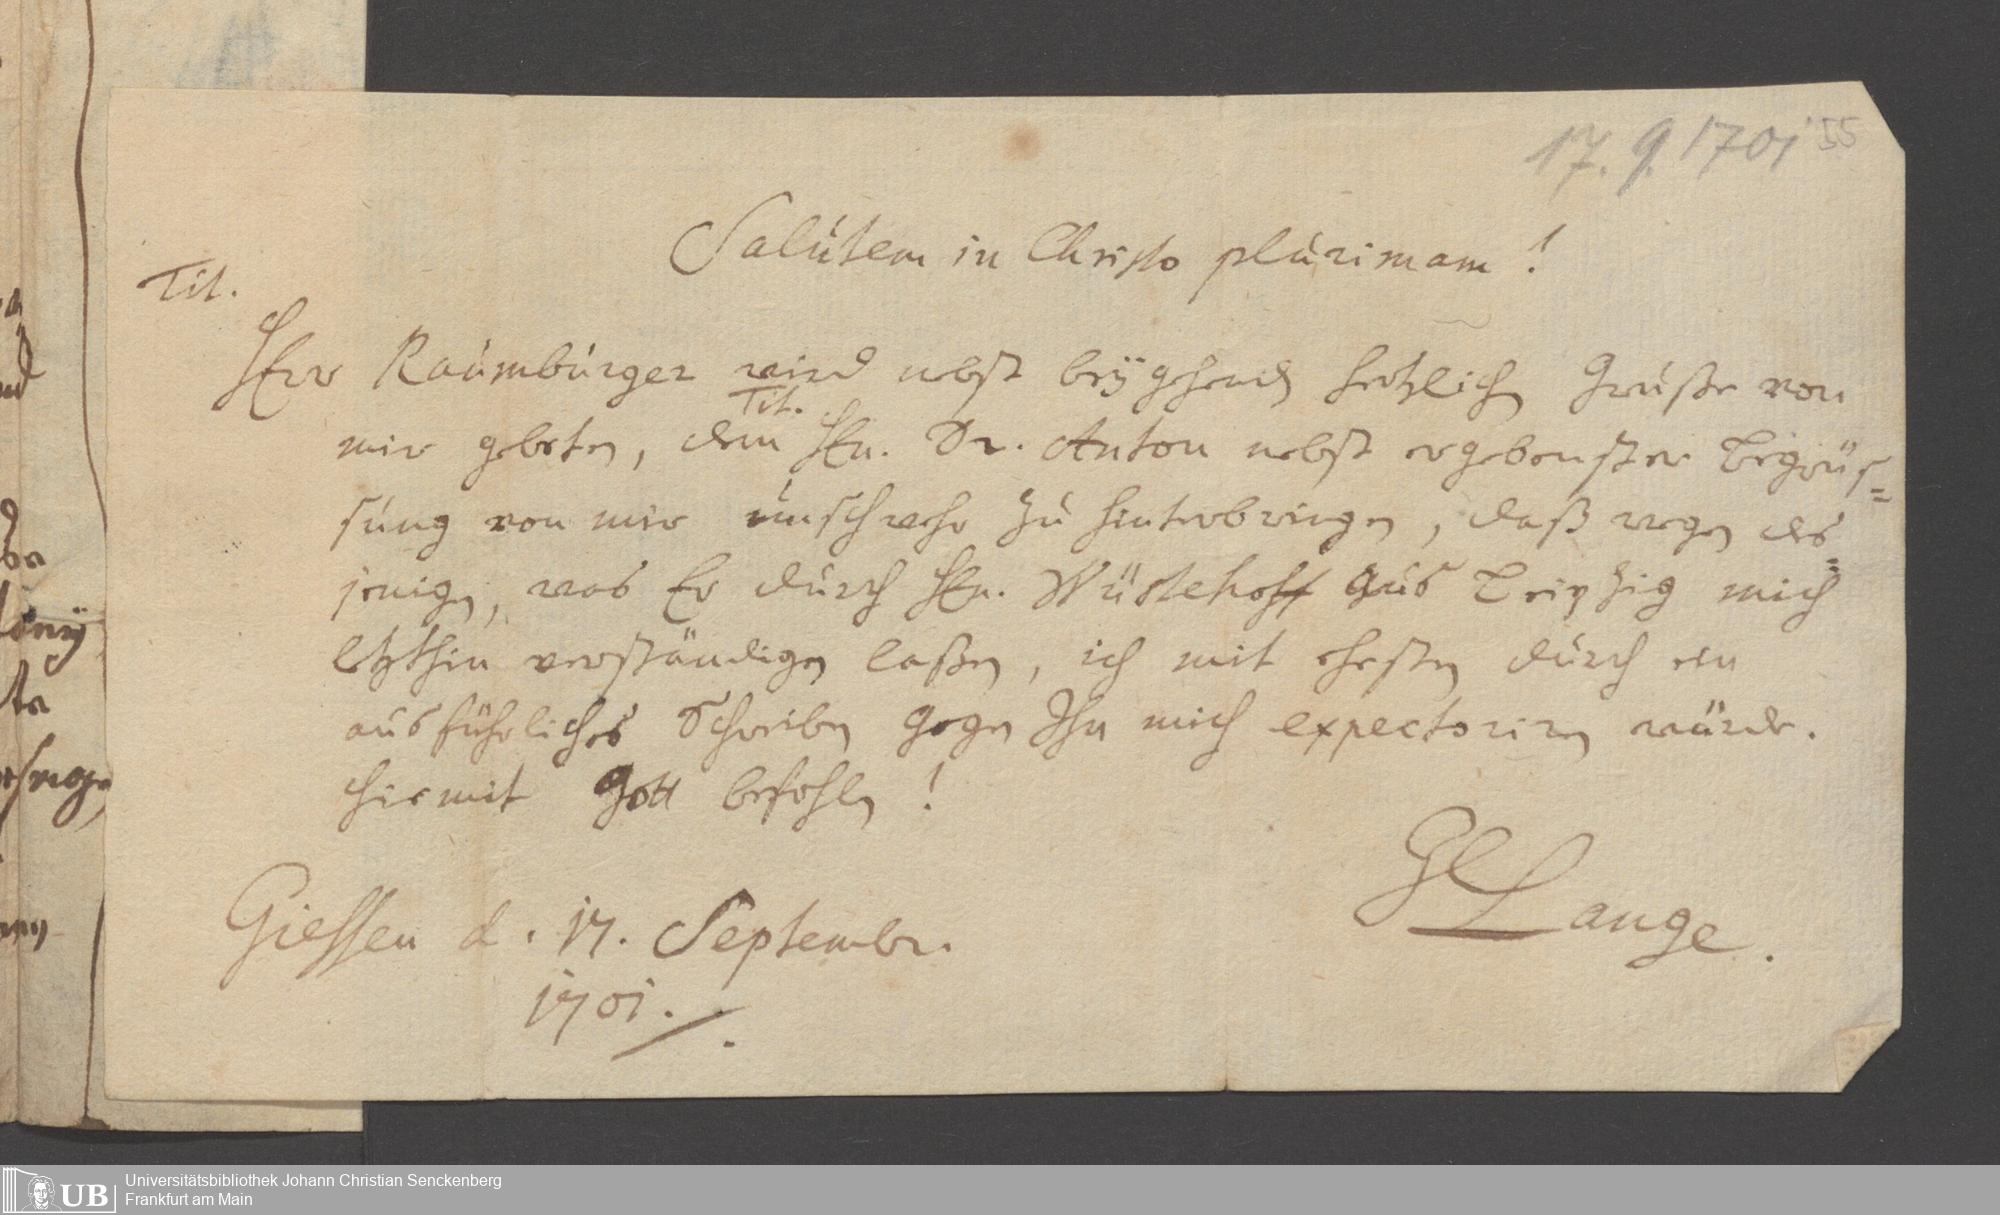 17. 9. 1701
55
Salutem in Christo plurimam!
Tit.
Herr Raumburger wird nebst beÿgehend hertzlich Gruße von
Tit.
mir gebeten, dem Hn. Dr. Anton nebst ergebenster Begrüs=
sung von mir unschwehr zu hinterbringen, daß wegen des=
jenigen, was Er durch Hn. Wüstehoff aus Leipzig mich
letzthin verständigen laßen, ich mit ehesten durch ein
ausführliches Schreiben gegen Ihn mich expectoriren würde.
Hiermit Gott befohlen!
GCLange.
Giessen d. 17. Septembr.
1701.
UB
Universitätsbibliothek Johann Christian Senckenberg
Frankfurt am Main